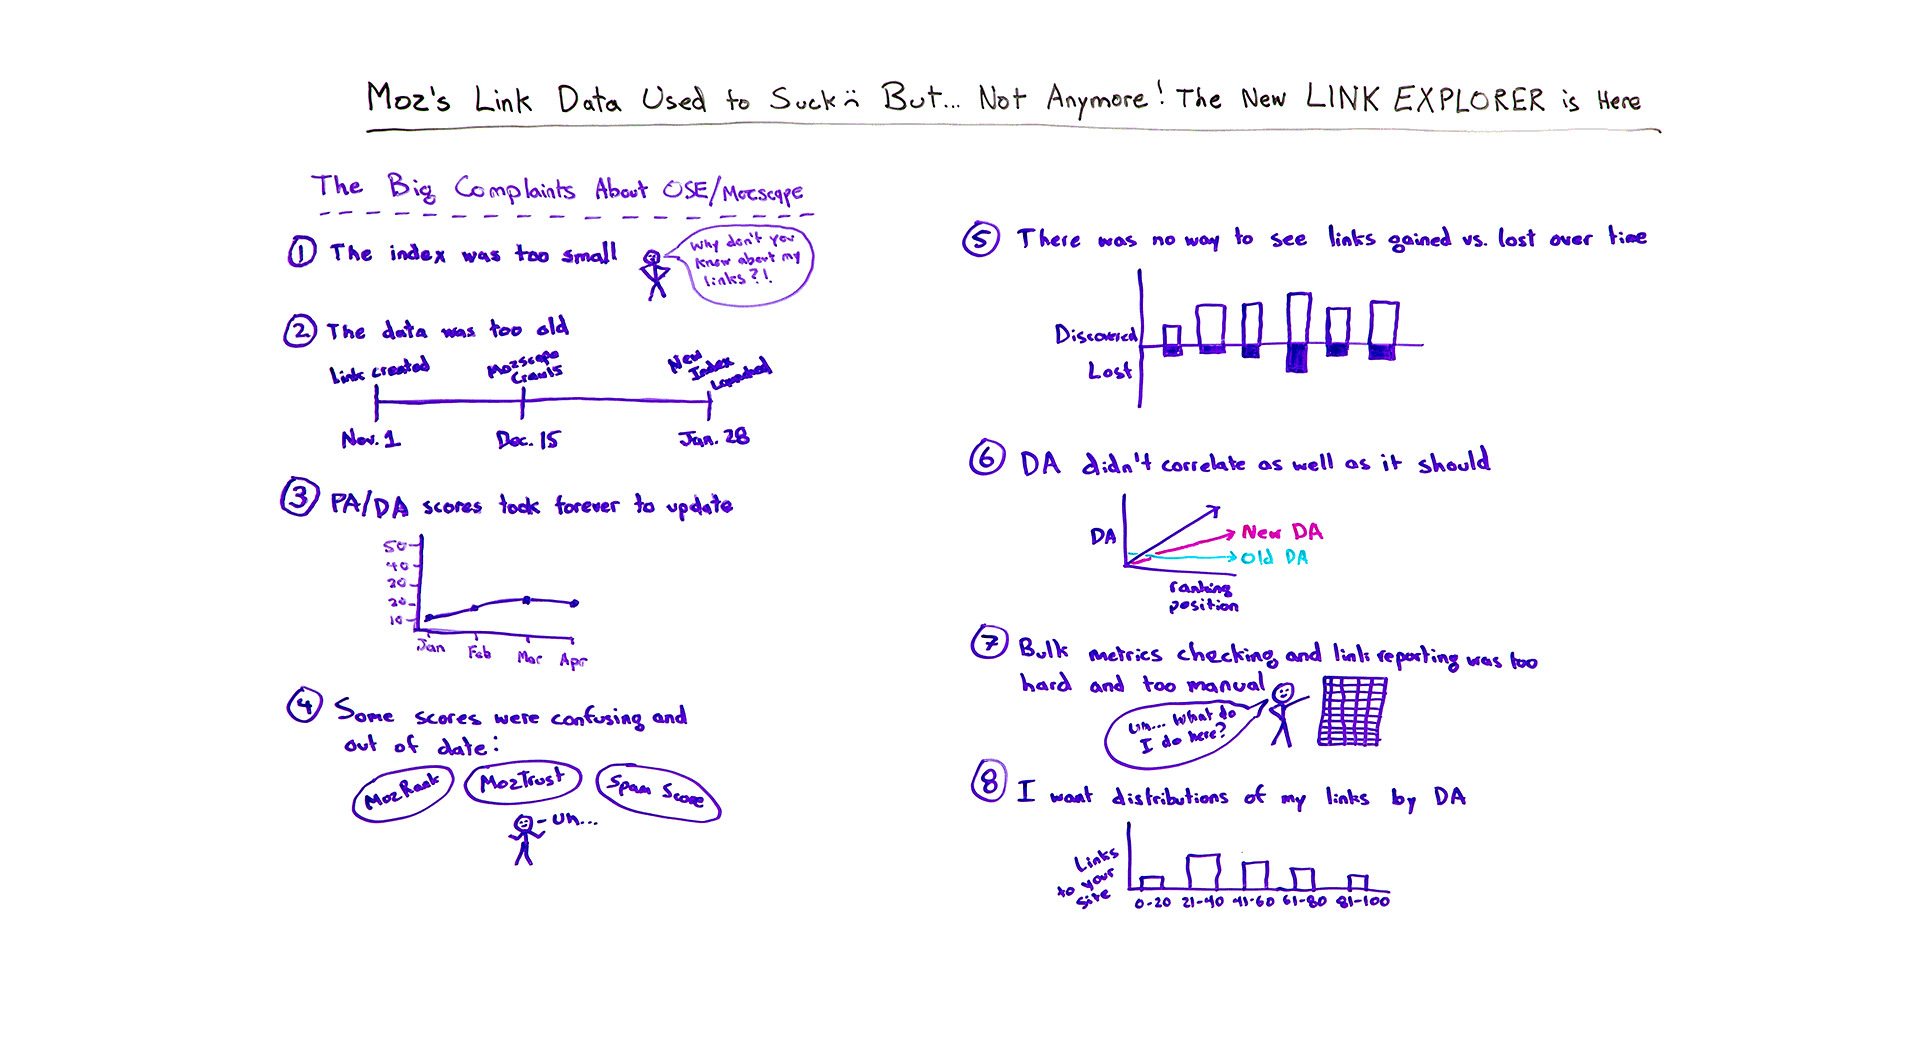 Moz's Link Data Used to Suck :( But... Not Anymore! The New LINK EXPLORER is Here
The Big Complaints About OSE/Mozscape
1 The index was too small
Why don't you
know about my
links?!
2 The data was too old
Link created
Mozscape
Crawls
New
Index
Launched
Nov. 1
Dec. 15
Jan. 28
3 PA/DA scores took forever to update
50
40
30
20
10
Jan
Feb
Mar
Apr
4 Some scores were confusing and
out of date:
MozRank
MozTrust
Spam Score
- Uh...
5 There was no way to see links gained vs. lost over time
Discovered
Lost
6 DA didn't correlate as well as it should
DA
New DA
Old DA
ranking
position
7 Bulk metrics checking and link reporting was too
hard and too manual
Uh... What do
I do here?
8 I want distributions of my links by DA
Links
to your
site
0-20 21-40 41-60 61-80 81-100